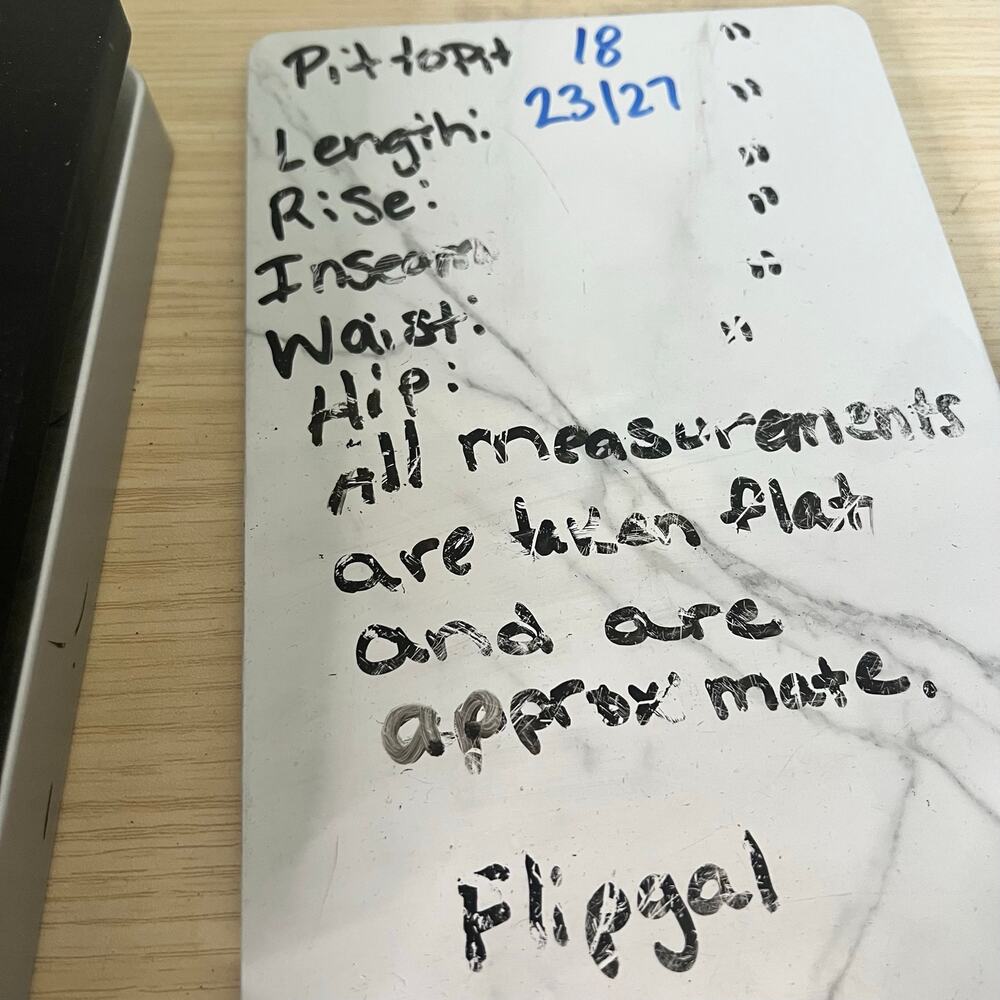 Pit to Pit 18 "
Length: 23/27 "
Rise: "
Inseam "
Waist: "
Hip: "
All measurements
are taken flat
and are
approximate.
Flipgal